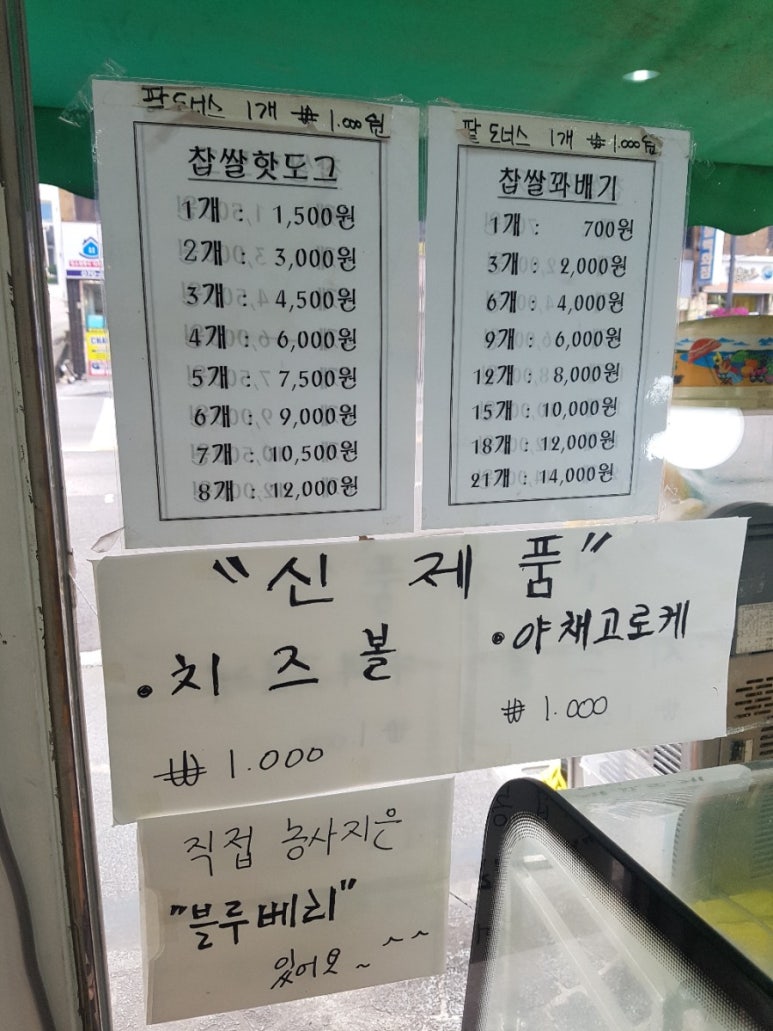 팥 도너스 1개 ₩ 1.000원
찹쌀핫도그
1개 : 1,500원
2개 : 3,000원
3개 : 4,500원
4개 : 6,000원
5개 : 7,500원
6개 : 9,000원
7개 : 10,500원
8개 : 12,000원
팥 도너스 1개 ₩ 1.000원
찹쌀꽈배기
1개 : 700원
3개 : 2,000원
6개 : 4,000원
9개 : 6,000원
12개 : 8,000원
15개 : 10,000원
18개 : 12,000원
21개 : 14,000원
"신 제 품"
• 치 즈 볼
₩ 1.000
• 야채고로케
₩ 1.000
직접 농사지은
"블루베리"
있어요~^^